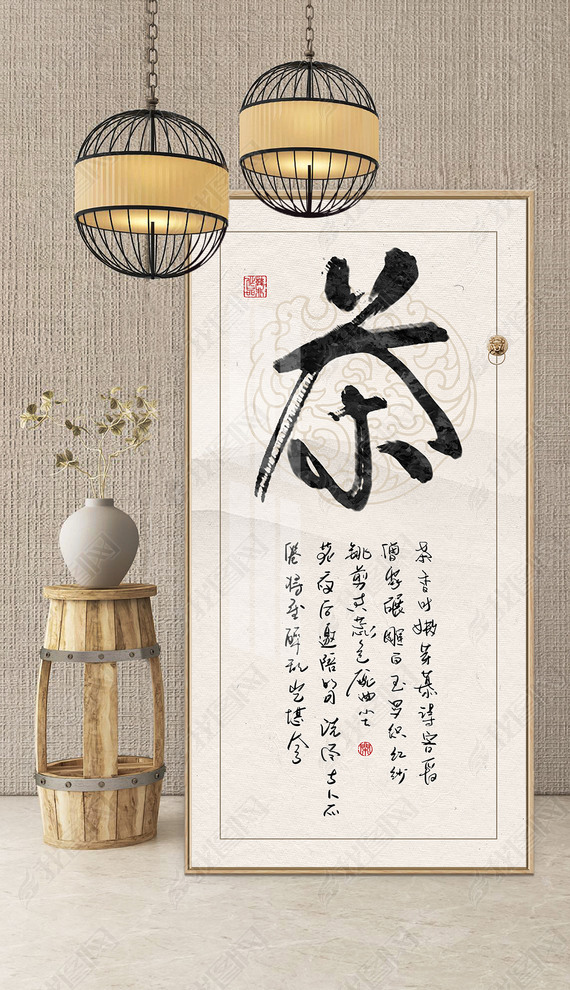 茶
茶香叶嫩芽慕诗客爱
僧家碾雕白玉罗织红纱
铫煎黄蕊色碗曲尘
花夜后邀陪明月洗尽古今人不
倦将至醉乱岂堪夸